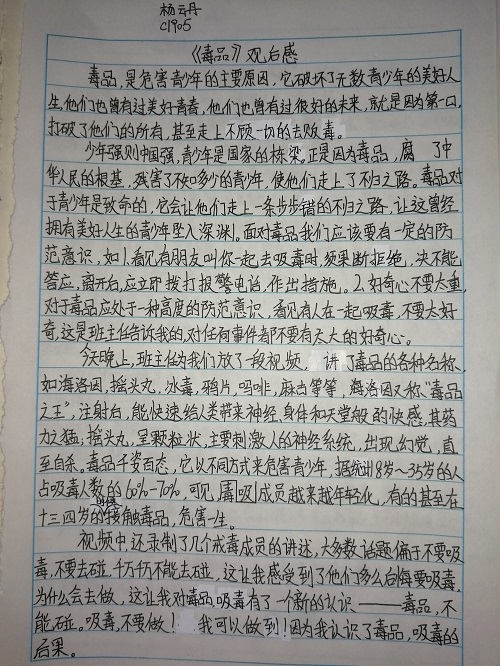 杨云丹
C1905
《毒品》观后感
毒品,是危害青少年的主要原因,它破坏了无数青少年的美好人
生,他们也曾有过美好青春,他们也曾有过很好的未来,就是因为第一口,
打破了他们的所有,甚至走上不顾一切的去贩毒。
少年强则中国强,青少年是国家的栋梁。正是因为毒品,腐 了中
华人民的根基,残害了不知多少的青少年,使他们走上了不归之路。毒品对
于青少年是致命的,它会让他们走上一条步步错的不归之路,让这曾经
拥有美好人生的青少年坠入深渊。面对毒品我们应该要有一定的防
范意识,如1.看见有朋友叫你一起去吸毒时,须果断拒绝,决不能
答应,离开后,应立即拨打报警电话,作出措施。2.好奇心不要太重,
对于毒品应处于一种高度的防范意识,看见有人在一起吸毒,不要太好
奇,这是班主任告诉我的,对任何事件都不要有太大的好奇心。
今天晚上,班主任为我们放了一段视频,讲了毒品的各种名称,
如海洛因,摇头丸,冰毒,鸦片,吗啡,麻古等等,海洛因又称"毒品
之王",注射后,能快速给人类带来神经、身体和天堂般的快感,其药
力之猛;摇头丸,呈颗粒状,主要刺激人的神经系统,出现幻觉,直
至自杀。毒品千姿百态,它以不同方式来危害青少年,据统计8岁~35岁的人
占吸毒人数的60%-70%,可见,吸成员越来越年轻化,有的甚至在
十三四岁的接触毒品,危害一生。
视频中还录制了几个戒毒成员的讲述,大多数话题偏于不要吸
毒,不要去碰,千万千万不能去碰,这让我感受到了他们多么后悔要吸毒,
为什么会去做,这让我对毒品,吸毒有了一个新的认识——毒品,不
能碰。吸毒,不要做!我可以做到!因为我认识了毒品,吸毒的
后果。